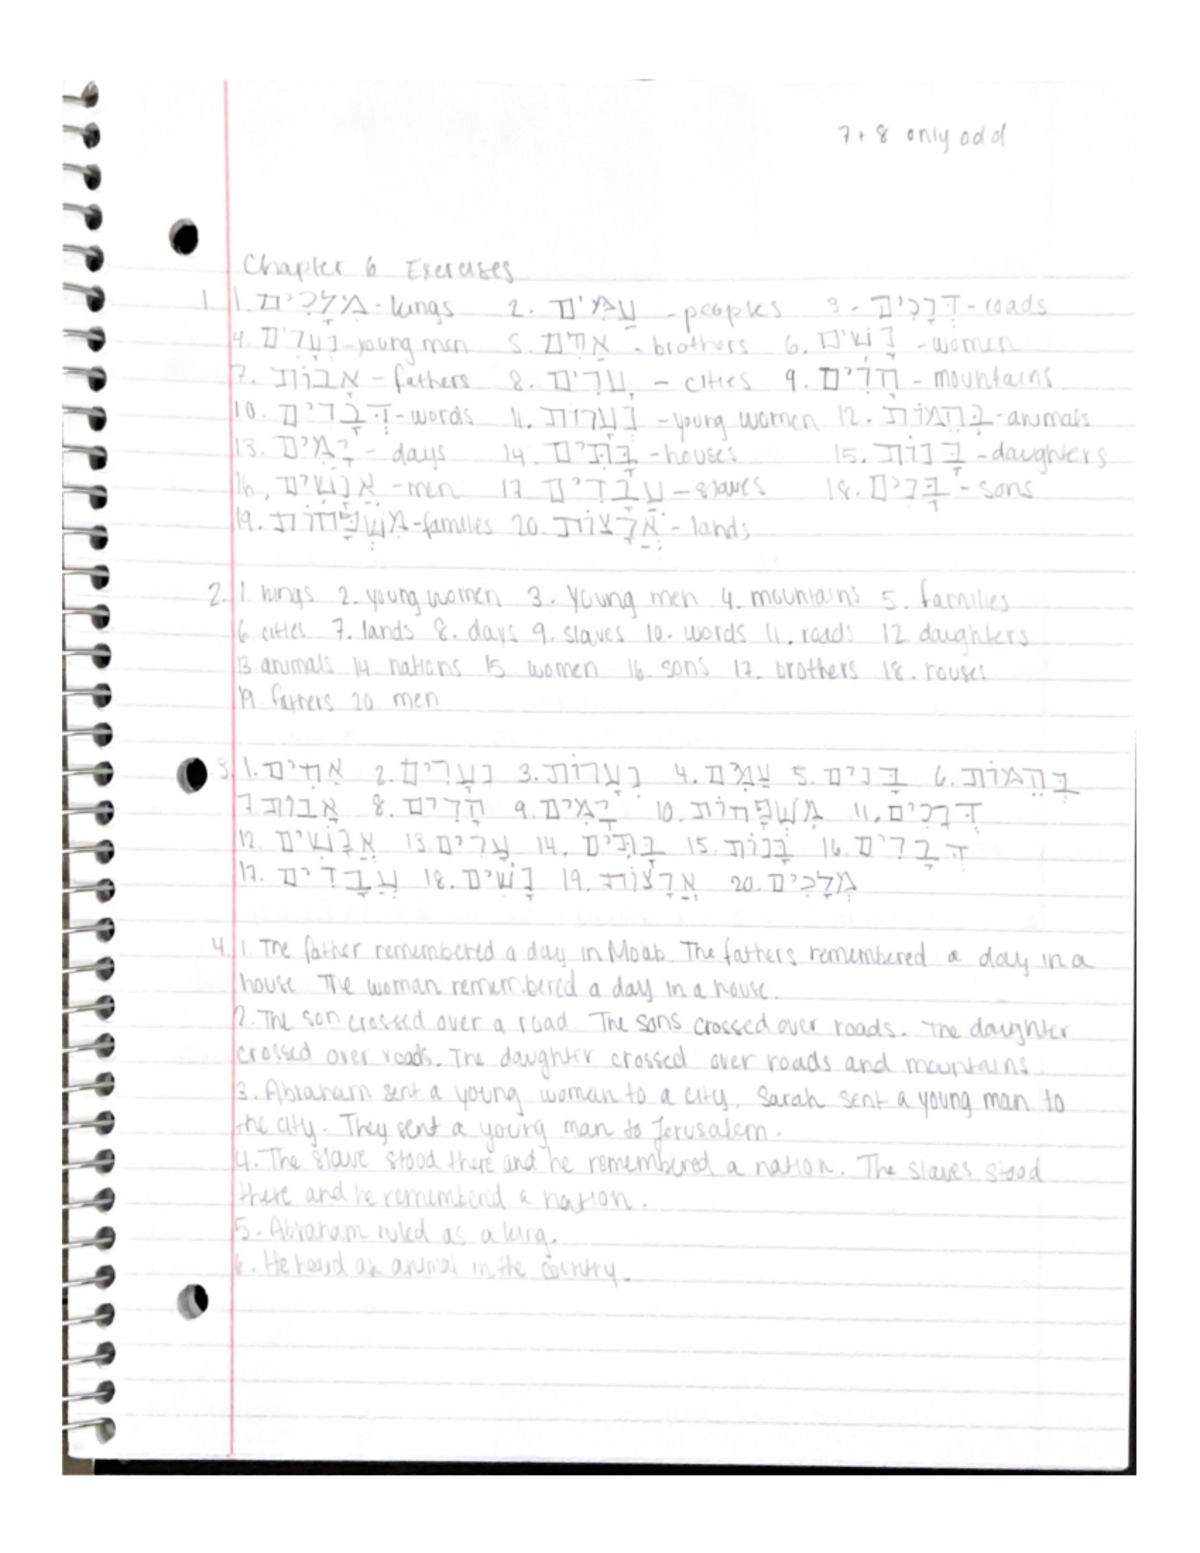 7+8 only odd
Chapter 6 Exercises
1. 1. מְלָכִים - kings 2. עַמִּים - peoples 3. דְּרָכִים - roads
4. נְעָרִים - young men 5. אַחִים - brothers 6. נָשִׁים - women
7. אָבוֹת - fathers 8. עָרִים - cities 9. הָרִים - mountains
10. דְּבָרִים - words 11. נְעָרוֹת - young women 12. בְּהֵמוֹת - animals
13. יָמִים - days 14. בָּתִּים - houses 15. בָּנוֹת - daughters
16. אֲנָשִׁים - men 17. עֲבָדִים - slaves 18. בָּנִים - sons
19. מִשְׁפָּחוֹת - families 20. אֲרָצוֹת - lands
2. 1. kings 2. young women 3. young men 4. mountains 5. families
6. cities 7. lands 8. days 9. slaves 10. words 11. roads 12 daughters
13 animals 14 nations 15 women 16. sons 17. brothers 18. houses
19. fathers 20 men
3. 1. אַחִים 2. נְעָרִים 3. נְעָרוֹת 4. עַמִּים 5. בָּנִים 6. בְּהֵמוֹת
7. אָבוֹת 8. הָרִים 9. יָמִים 10. מִשְׁפָּחוֹת 11. דְּרָכִים
12. אֲנָשִׁים 13 עָרִים 14. בָּתִּים 15. בָּנוֹת 16. דְּבָרִים
17. עֲבָדִים 18. נָשִׁים 19. אֲרָצוֹת 20. מְלָכִים
4. 1. The father remembered a day in Moab. The fathers remembered a day in a
house. The woman remembered a day in a house.
2. The son crossed over a road. The sons crossed over roads. The daughter
crossed over roads. The daughter crossed over roads and mountains
3. Abraham sent a young woman to a city. Sarah sent a young man to
the city. They sent a young man to Jerusalem.
4. The slave stood there and he remembered a nation. The slaves stood
there and he remembered a nation.
5. Abraham ruled as a king.
6. He heard an animal in the country.